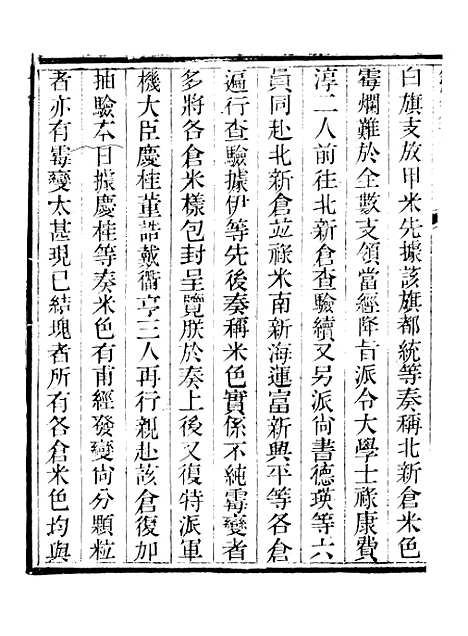 白旗支放甲米先據該旗都統等奏稱北新倉米色
霉爛難於全數支領當經降旨派令大學士祿康費
淳二人前往北新倉查驗續又另派尚書德瑛等六
員同赴北新倉並祿米南新海運富新興平等各倉
逼行查驗據伊等先後奏稱米色實係不純霉變者
多將各倉米樣包封呈覽朕於奏上後又復特派軍
機大臣慶桂董誥戴衢亨三人再行親赴該倉復加
抽驗本日據慶桂等奏米色有甫經發變尚分顆粒
者亦有霉變太甚現已結塊者所有各倉米色均與